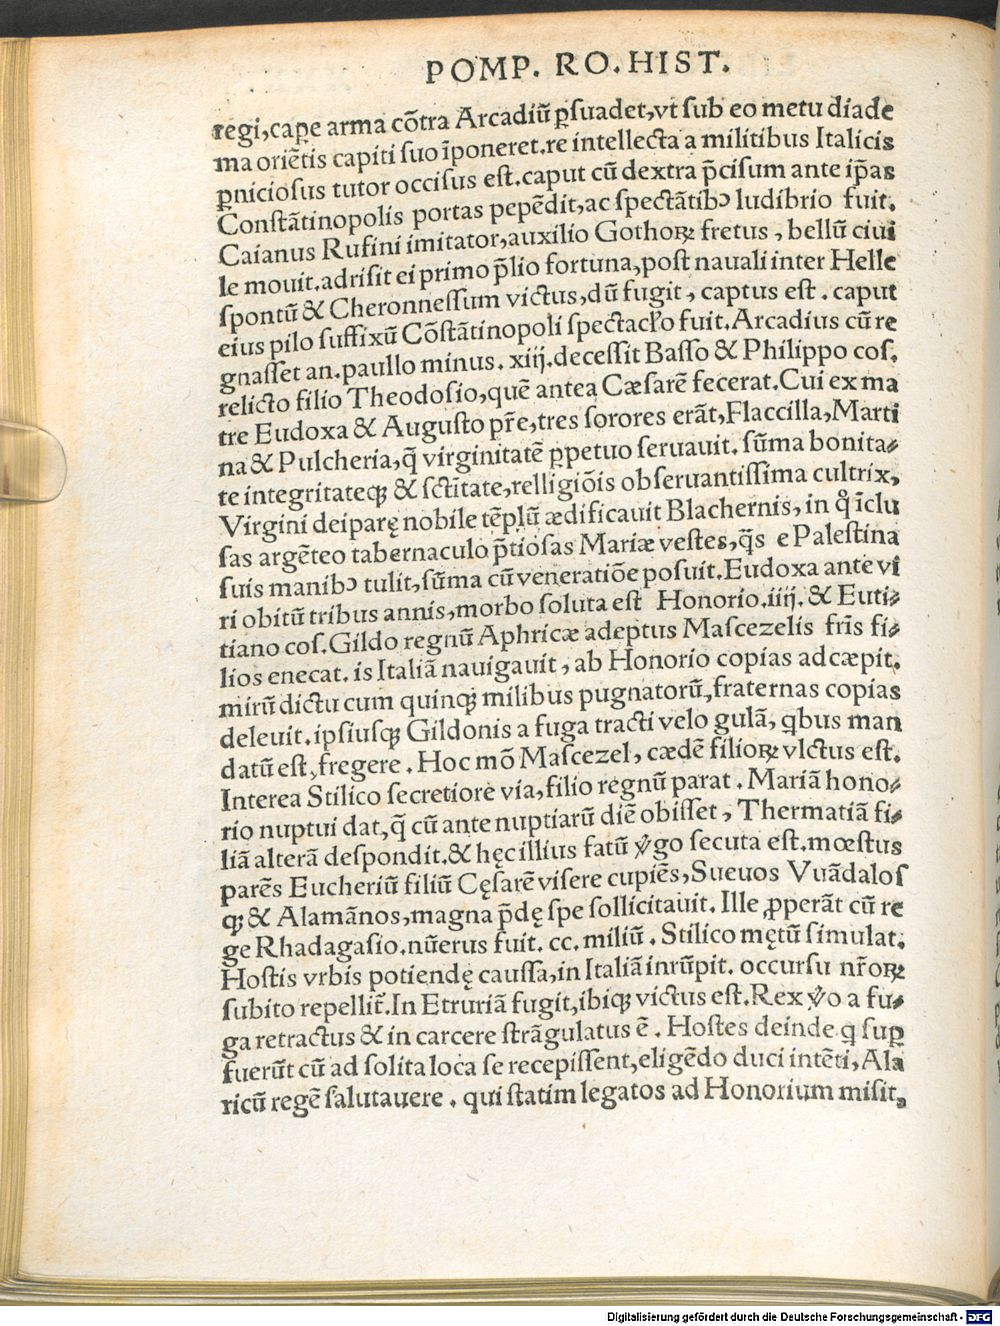 POMP. RO. HIST.
regi, cap̲e arma cõtra Arcadiũ p̲ſuadet, vt ſub eo metu diade
ma oriẽtis capiti ſuo īponeret. re intellecta a militibus Italicis
p̲niciosus tutor occiſus eſt. caput cũ dextra p̄ciſum ante ip̄as
Conſtãtinopolis portas pepẽdit, ac ſpectãtibꝰ ludibrio fuit.
Caianus Rufini imitator, auxilio Gothoꝝ fretus, bellũ ciui
le mouit. adriſit ei primo p̄lio fortuna, poſt nauali inter Helle
ſpontũ & Cheronneſſum victus, dũ fugit, captus eſt. caput
eius pilo ſuffixũ Cõſtãtinopoli ſpectacło fuit. Arcadius cũ re
gnaſſet an. paullo minus. xiij. deceſſit Baſſo & Philippo coſ.
relicto filio Theodoſio, quẽ antea Cæſarẽ fecerat. Cui ex ma
tre Eudoxa & Auguſto pr̄e, tres ſorores erãt, Flaccilla, Marti
na & Pulcheria, q̄ virginitatẽ p̲petuo ſeruauit. ſũma bonita⸗
te integritateqꝫ & ſctĩtate, relligiõis obſeruantiſſima cultrix,
Virgini deiparę nobile tẽplũ ædificauit Blachernis, in qͦ ĩclu
ſas argẽteo tabernaculo p̄tioſas Mariæ veſtes, q̄s e Paleſtina
ſuis manibꝰ tulit, ſũma cũ veneratiõe poſuit. Eudoxa ante vi
ri obitũ tribus annis, morbo ſoluta eſt Honorio. iiij. & Euti⸗
tiano coſ. Gildo regnũ Aphricæ adeptus Maſcezelis fr̄is fi⸗
lios enecat. is Italiã nauigauit, ab Honorio copias adcæpit.
mirũ dictu cum quinqꝫ milibus pugnatorũ, fraternas copias
deleuit. ipſiuſqꝫ Gildonis a fuga tracti velo gulã, qbus man
datũ eſt, fregere. Hoc mõ Maſcezel, cædẽ filioꝝ vlctus eſt.
Interea Stilico ſecretiore via, filio regnũ parat. Mariã hono⸗
rio nuptui dat, q̄ cũ ante nuptiarũ diẽ obiſſet, Thermatiã fi⸗
liã alterã deſpondit. & hęc illius fatũ v̊go ſecuta eſt. mœſtus
parẽs Eucheriũ filiũ Cęſarẽ viſere cupiẽs, Sueuos Vuãdaloſ
qꝫ & Alamãnos, magna p̄dę ſpe ſollicitauit. Ille ꝓperãt cũ re
ge Rhadagaſio. nũerus fuit. cc. miliũ. Stilico mętũ ſimulat.
Hoſtis vrbis potiendę cauſſa, in Italiã inrũpit. occurſu nr̄oꝝ
ſubito repellit̃. In Etruriã fugit, ibiqꝫ victus eſt. Rex v̊o a fu⸗
ga retractus & in carcere ſtrãgulatus ẽ. Hoſtes deinde q ſup̲
fuerũt cũ ad ſolita loca ſe recepiſſent, eligẽdo duci intẽti, Ala
ricũ regẽ ſalutauere. qui ſtatim legatos ad Honorium miſit,
Digitalisierung gefördert durch die Deutsche Forschungsgemeinschaft - DFG